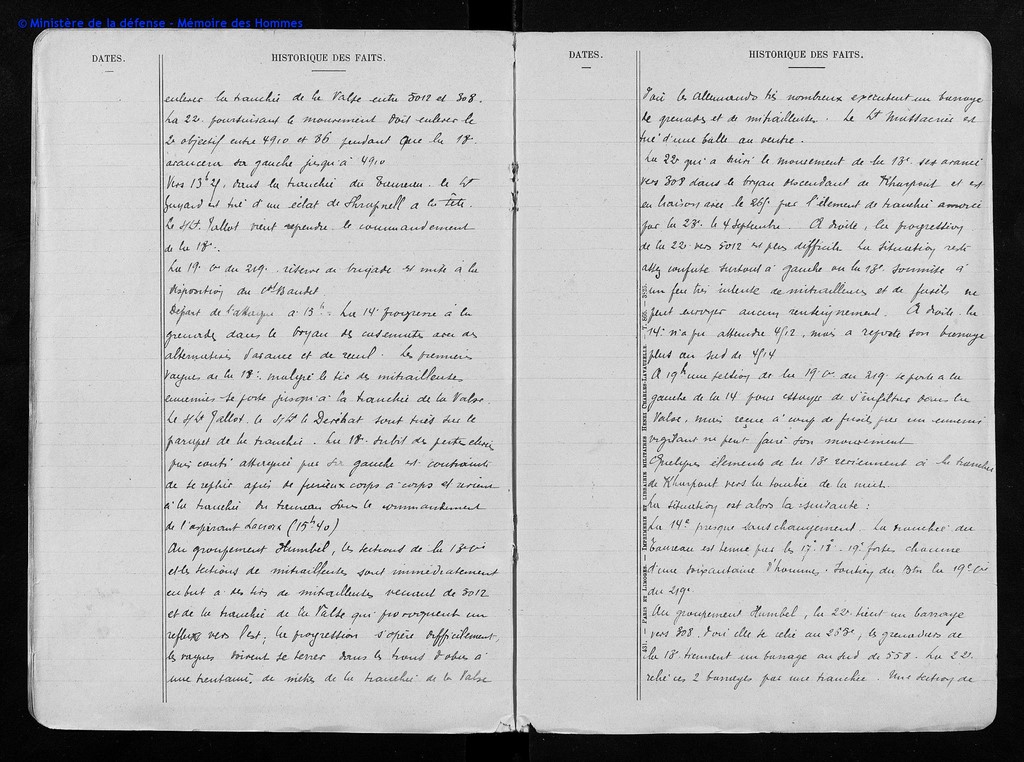 © Ministère de la défense - Mémoire des Hommes
DATES.
HISTORIQUE DES FAITS.
enlever la tranchée de la Valse entre 5012 et 308.
La 22e poursuivant le mouvement doit enlever le
2e objectif entre 4910 et 86 pendant que la 18e
avancera sa gauche jusqu'à 4910
Vers 13h 25, dans la tranchée du Taureau le Lt
Guyard est tué d'un éclat de Shrapnell à la tête.
Le s/Lt Jallot vient reprendre le commandement
de la 18e.
La 19e Cie du 219e réserve de brigade est mise à la
disposition du Ct Baudet
Départ de l'attaque à 15h. La 14e progresse à la
grenade dans le boyau des casemates avec des
alternatives d'avance et de recul. Les premières
vagues de la 18e malgré le tir des mitrailleuses
ennemies se porte jusqu'à la tranchée de la Valse.
Le s/Lt Jallot, le s/Lt le Deréhat sont tués sur le
parapet de la tranchée. La 18e subit des pertes
puis contre attaquée par sa gauche est contrainte
de se replier après de furieux corps à corps et revient
à la tranchée du Taureau sous le commandement
de l'aspirant Lacroix (15h40)
Au groupement Humbel, les sections de la 13e Cie
et les sections de mitrailleuses sont immédiatement
en but à des tirs de mitrailleuses venant de 5012
et de la tranchée de la Valse qui provoquent un
reflux vers l'est, la progression s'opère difficilement,
les vagues doivent se terrer dans les trous d'obus à
une trentaine de mètres de la tranchée de la Valse
DATES.
HISTORIQUE DES FAITS.
d'où les Allemands très nombreux exécutent un barrage
de grenades et de mitrailleuses. Le Lt est
tué d'une balle au ventre.
La 22e qui a suivi le mouvement de la 13e s'est avancé
vers 308 dans le boyau descendant de Kharpout et est
en liaison avec le 265e par l'élément de tranchée amorcé
par la 23e le 4 septembre. A droite, la progression
de la 22e vers 5012 est plus difficile. La situation reste
assez confuse surtout à gauche où la 13e soumise à
un feu très intense de mitrailleuses et de fusils ne
peut envoyer aucun renseignement. A droite la
14e n'a pu atteindre 4912, mais a reporté son barrage
plus au sud de 4914
A 19h une section de la 19e Cie du 219e se porte à la
gauche de la 14e pour essayer de s'infiltrer dans la
Valse, mais reçue à coup de fusils par un ennemi
vigilant ne peut faire son mouvement
Quelques éléments de la 13e reviennent à la tranchée
de Kharpout vers la tombée de la nuit.
La situation est alors la suivante :
La 14e presque sans changement. La tranchée du
Taureau est tenue par les 17e 18e 19e fortes chacune
d'une soixantaine d'hommes. Soutien du Btn la 19e Cie
du 219e
Au groupement Humbel, la 22e tient un barrage
vers 308 d'où elle se relie au 265e, les grenadiers de
la 13e tiennent un barrage au sud de 558. La 22e
relie ces 2 barrages par une tranchée. Une section de
431. — PARIS ET LIMOGES. IMPRIMERIE ET LIBRAIRIE MILITAIRES HENRI CHARLES-LAVAUZELLE.